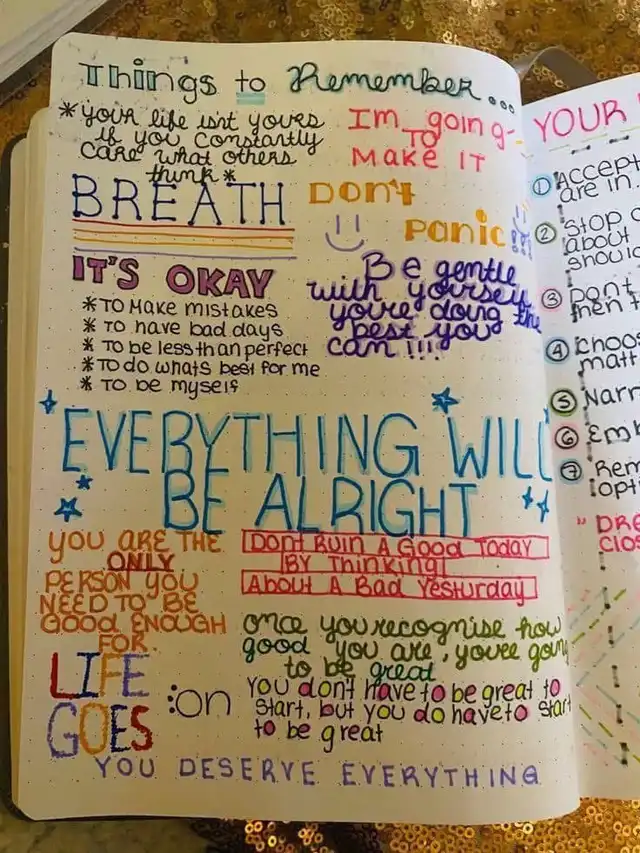 Things to Remember...
*your life isnt yours
if you constantly
care what others
think*
I'm going
TO
MAKE IT
BREATH
Don't
Panic
IT'S OKAY
*TO MAKE MISTAKES
*To have bad days
*To be less than perfect
*To do whats best for me
*TO be myself
Be gentle
with yourself
you're doing the
best you
can!!!
EVERYTHING WILL
BE ALRIGHT
YOU ARE THE
ONLY
PERSON YOU
NEED TO BE
GOOD ENOUGH
FOR.
Dont Ruin A Good Today
By Thinking
About A Bad Yesturday
once you recognise how
good you are, you're going
to be great
LIFE
GOES
:on
You don't have to be great to
start, but you do have to start
to be great
YOU DESERVE EVERYTHING
YOUR
① ACCEPT
are in
② STOP
about
shoul
③ Dont
men
④ Choos
matt
⑤ Narr
⑥ Emb
⑦ Rem
opti
"DRE
clos